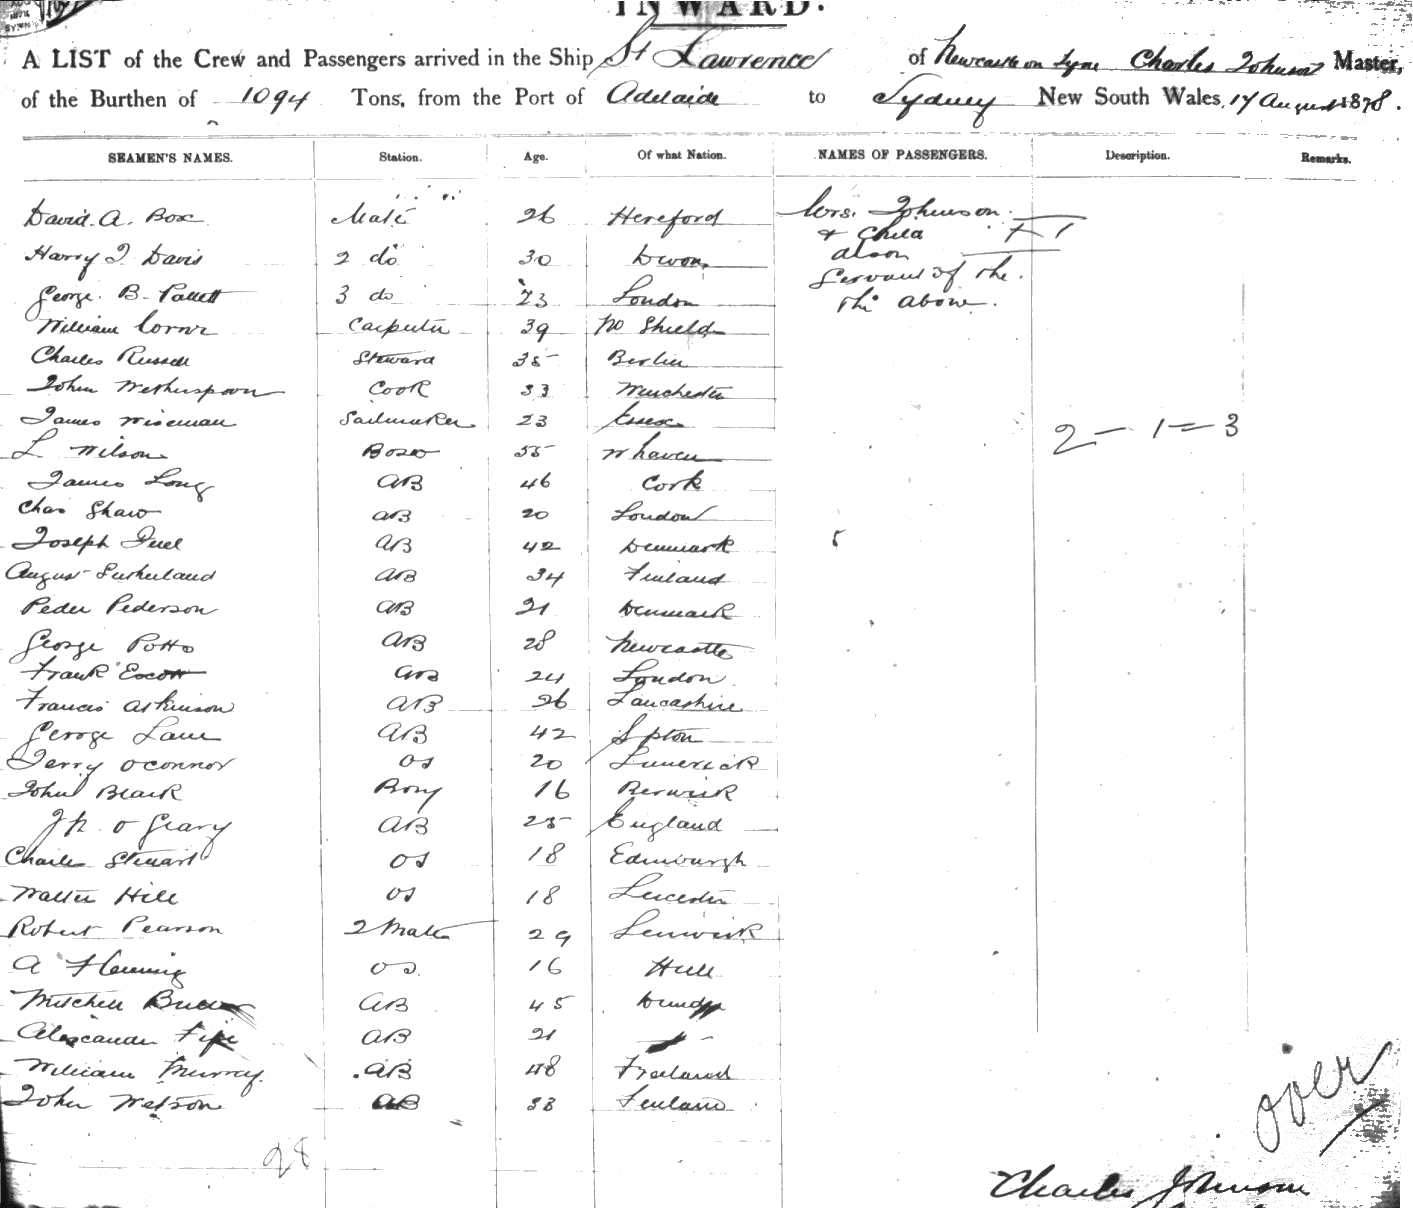 INWARD.
A LIST of the Crew and Passengers arrived in the Ship St Lawrence of Newcastle on Tyne Charles Johnson Master,
of the Burthen of 1094 Tons, from the Port of Adelaide to Sydney New South Wales, 17 August 1878.
SEAMEN'S NAMES. Station. Age. Of what Nation. NAMES OF PASSENGERS. Description. Remarks.
David. A. Box Mate 26 Hereford Mrs. Johnson
& Child
Harry J Davis 2 do 30 Devon
Servant of the
George. B. Pallett 3 do 23 London the above.
William Corner Carpenter 39 No Shields
Charles Russell Steward 35 Berlin
John Wetherspoon Cook 33 Winchester
James Wiseman Sailmaker 23 Essex
2 - 1 = 3
L Wilson Bosn 55 W haven
James Long AB 46 Cork
Chas Shaw AB 20 London
Joseph AB 42 Denmark 5
August Sutherland AB 34 Finland
Peder Pederson AB 21 Denmark
George Potts AB 28 Newcastle
Frank Escott AB 24 London
Francis Atkinson AB 26 Lancashire
George Lane AB 42 Spton
Jerry OConnor OS 20 Limerick
John Black Boy 16 Berwick
Jn O Geary AB 25 England
Charles Stewart OS 18 Edinburgh
Walter Hill OS 18 Leicester
Robert Pearson 2 Mate 29
A Fleming OS 16 Hull
Mitchell AB 45 Dundee
Alexander Fife AB 21
William Murray AB 48
John Watson AB 33
28
over
Charles Johnson